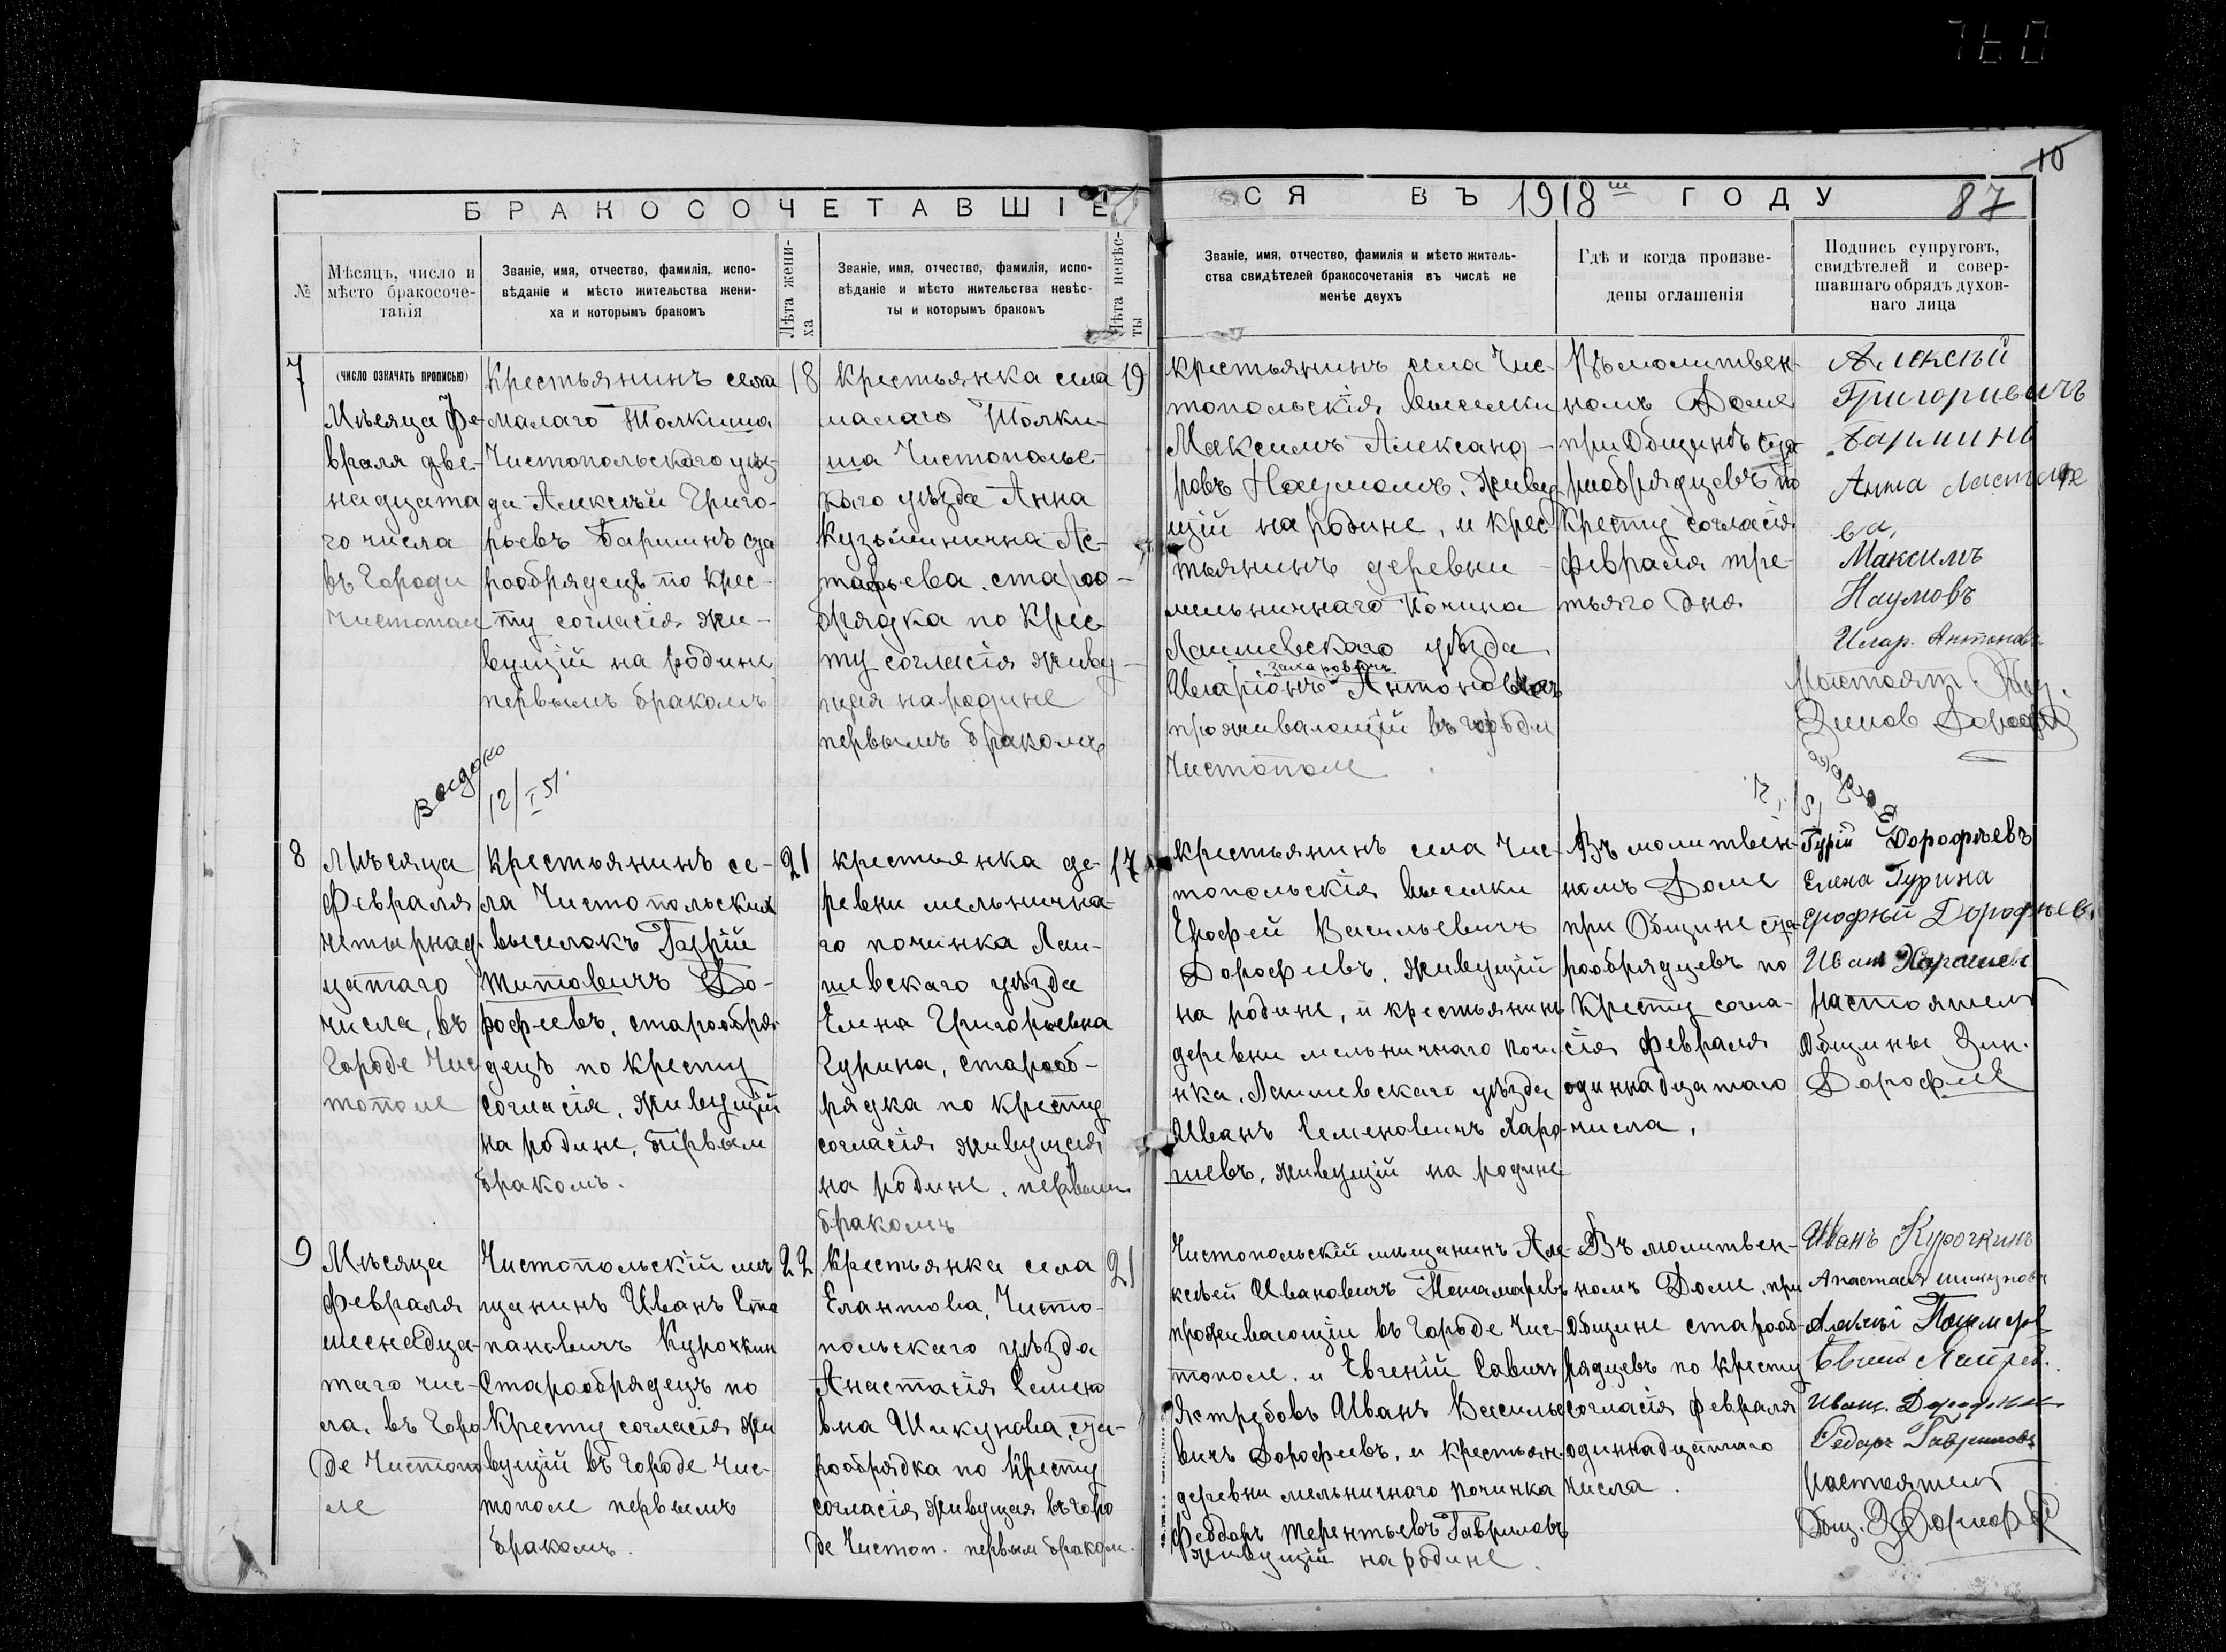 10
БРАКОСОЧЕТАВШІЕ
СЯ ВЪ 1918 ГОДУ
87
№
Мѣсяцъ, число и
мѣсто бракосоче-
танія
Званіе, имя, отчество, фамилія, испо-
вѣданіе и мѣсто жительства жени-
ха и которымъ бракомъ
Лѣта жени-
ха
Званіе, имя, отчество, фамилія, испо-
вѣданіе и мѣсто жительства невѣс-
ты и которымъ бракомъ
Лѣта невѣс-
ты
Званіе, имя, отчество, фамилія и мѣсто житель-
ства свидѣтелей бракосочетанія въ числѣ не
менѣе двухъ
Гдѣ и когда произве-
дены оглашенія
Подпись супруговъ,
свидѣтелей и совер-
шавшаго обрядъ духов-
наго лица
7
(ЧИСЛО ОЗНАЧАТЬ ПРОПИСЬЮ)
Мѣсяца Фе-
враля две-
надцата
го числа
въ Городи
Чистопол
Крестьянинъ села
малаго Толкиша
Чистопольскаго уѣз
да Алексѣй Григо-
рьевъ Барминъ ста
рообрядецъ по Крес-
ту согласія жи-
вущій на родине
первымъ бракомъ
18
Крестьянка села
малаго Толки-
ша Чистополье-
каго уѣзда Анна
Кузьминична Ас-
тафьева. староо-
брядка по Крес
ту согласія живу-
щая на родине
первымъ бракомъ
19
крестьянинъ села Чис-
топольскія Выселки
Максимъ Александ-
ровъ Наумомъ. Живу
щій на родине, и крес
тьянинъ деревни
мельничнаго Почина
Лаишевскаго уѣзда
Захаровичъ
Иларіонъ Антоновъ
проживающій въ городи
Чистополе
Въ молитвен-
номъ Доме
при Общинѣ ста
рообрядцевъ по
Кресту согласія
февраля тре-
тьяго дня
Алексѣй
Григориевичъ
Барминъ
Анна Ластафе
ва,
Максимъ
Наумовъ
Илар. Антоновъ
Зинов Дорофе
Выдано
12/I 51.
8
Мѣсяца
Февраля
четырнад-
цатаго
числа, въ
Городе Чис
тополе
Крестьянинъ се-
ла Чистопольския
выселокъ Гурій
Титовичъ До-
рофеевъ, старообря
децъ по кресту
согласія, живущій
на родине, первым
бракомъ.
21
крестьянка де-
ревни мельнична-
го починка Лаи-
шевскаго уѣзда
Елена Григорьевна
Гурина, старооб-
рядка по кресту
согласія живущая
на родине, первым
бракомъ
17
крестьянинъ села Чис-
топольскія выселки
Ерофей Васильевичъ
Дорофеевъ, живущій
на родине, и крестьянинъ
деревни мельничнаго почи
нка, Лаишевскаго уѣзда
Иванъ Семеновичъ Харо
шевъ, живущій на родине
Въ молитвен-
номъ Доме
при Общине ста-
рообрядцевъ по
Кресту согла-
сія Февраля
одиннадцатаго
числа,
Гурій Дорофѣевъ
Елена Гурина
Ерофѣй Дорофѣев.
Иван Харашев
Настоятель
Общины Зин.
Дорофеев
9
Мѣсяца
Февраля
шеснадца-
таго чис-
ла, въ Горо
де Чистопо
ле
Чистопольскій мѣ
щанинъ Иванъ Сте
пановичъ Курочкин
Старообрядецъ по
Кресту согласія жи
вущій въ городе Чис-
тополе первымъ
бракомъ.
22
Крестьянка села
Елантова, Чисто-
польскаго уѣзда
Анастасія Семено
вна Шикунова, ста-
рообрядка по Кресту
согласія живущая въ горо
де Чистоп. первым браком.
21
Чистопольскій мѣщанинъ Але-
ксѣй Ивановичъ Понамаревъ
проживающій въ Городе Чис-
тополе. и Евгеній Савичъ
Ястребовъ Иванъ Василье
вичъ Дорофеевъ, и крестьян.
деревни мельничного починка
Феодоръ Терентьевъ Гавриловъ
живущій на родине.
Въ молитвен-
номъ Доме, при
Общине старооб-
рядцевъ по кресту
согласія февраля
одиннадцатаго
числа.
Иванъ Курочкинъ
Анастасия Шикунова
Иван. Дорофеев
Федоръ Гавриловъ
Настоятель